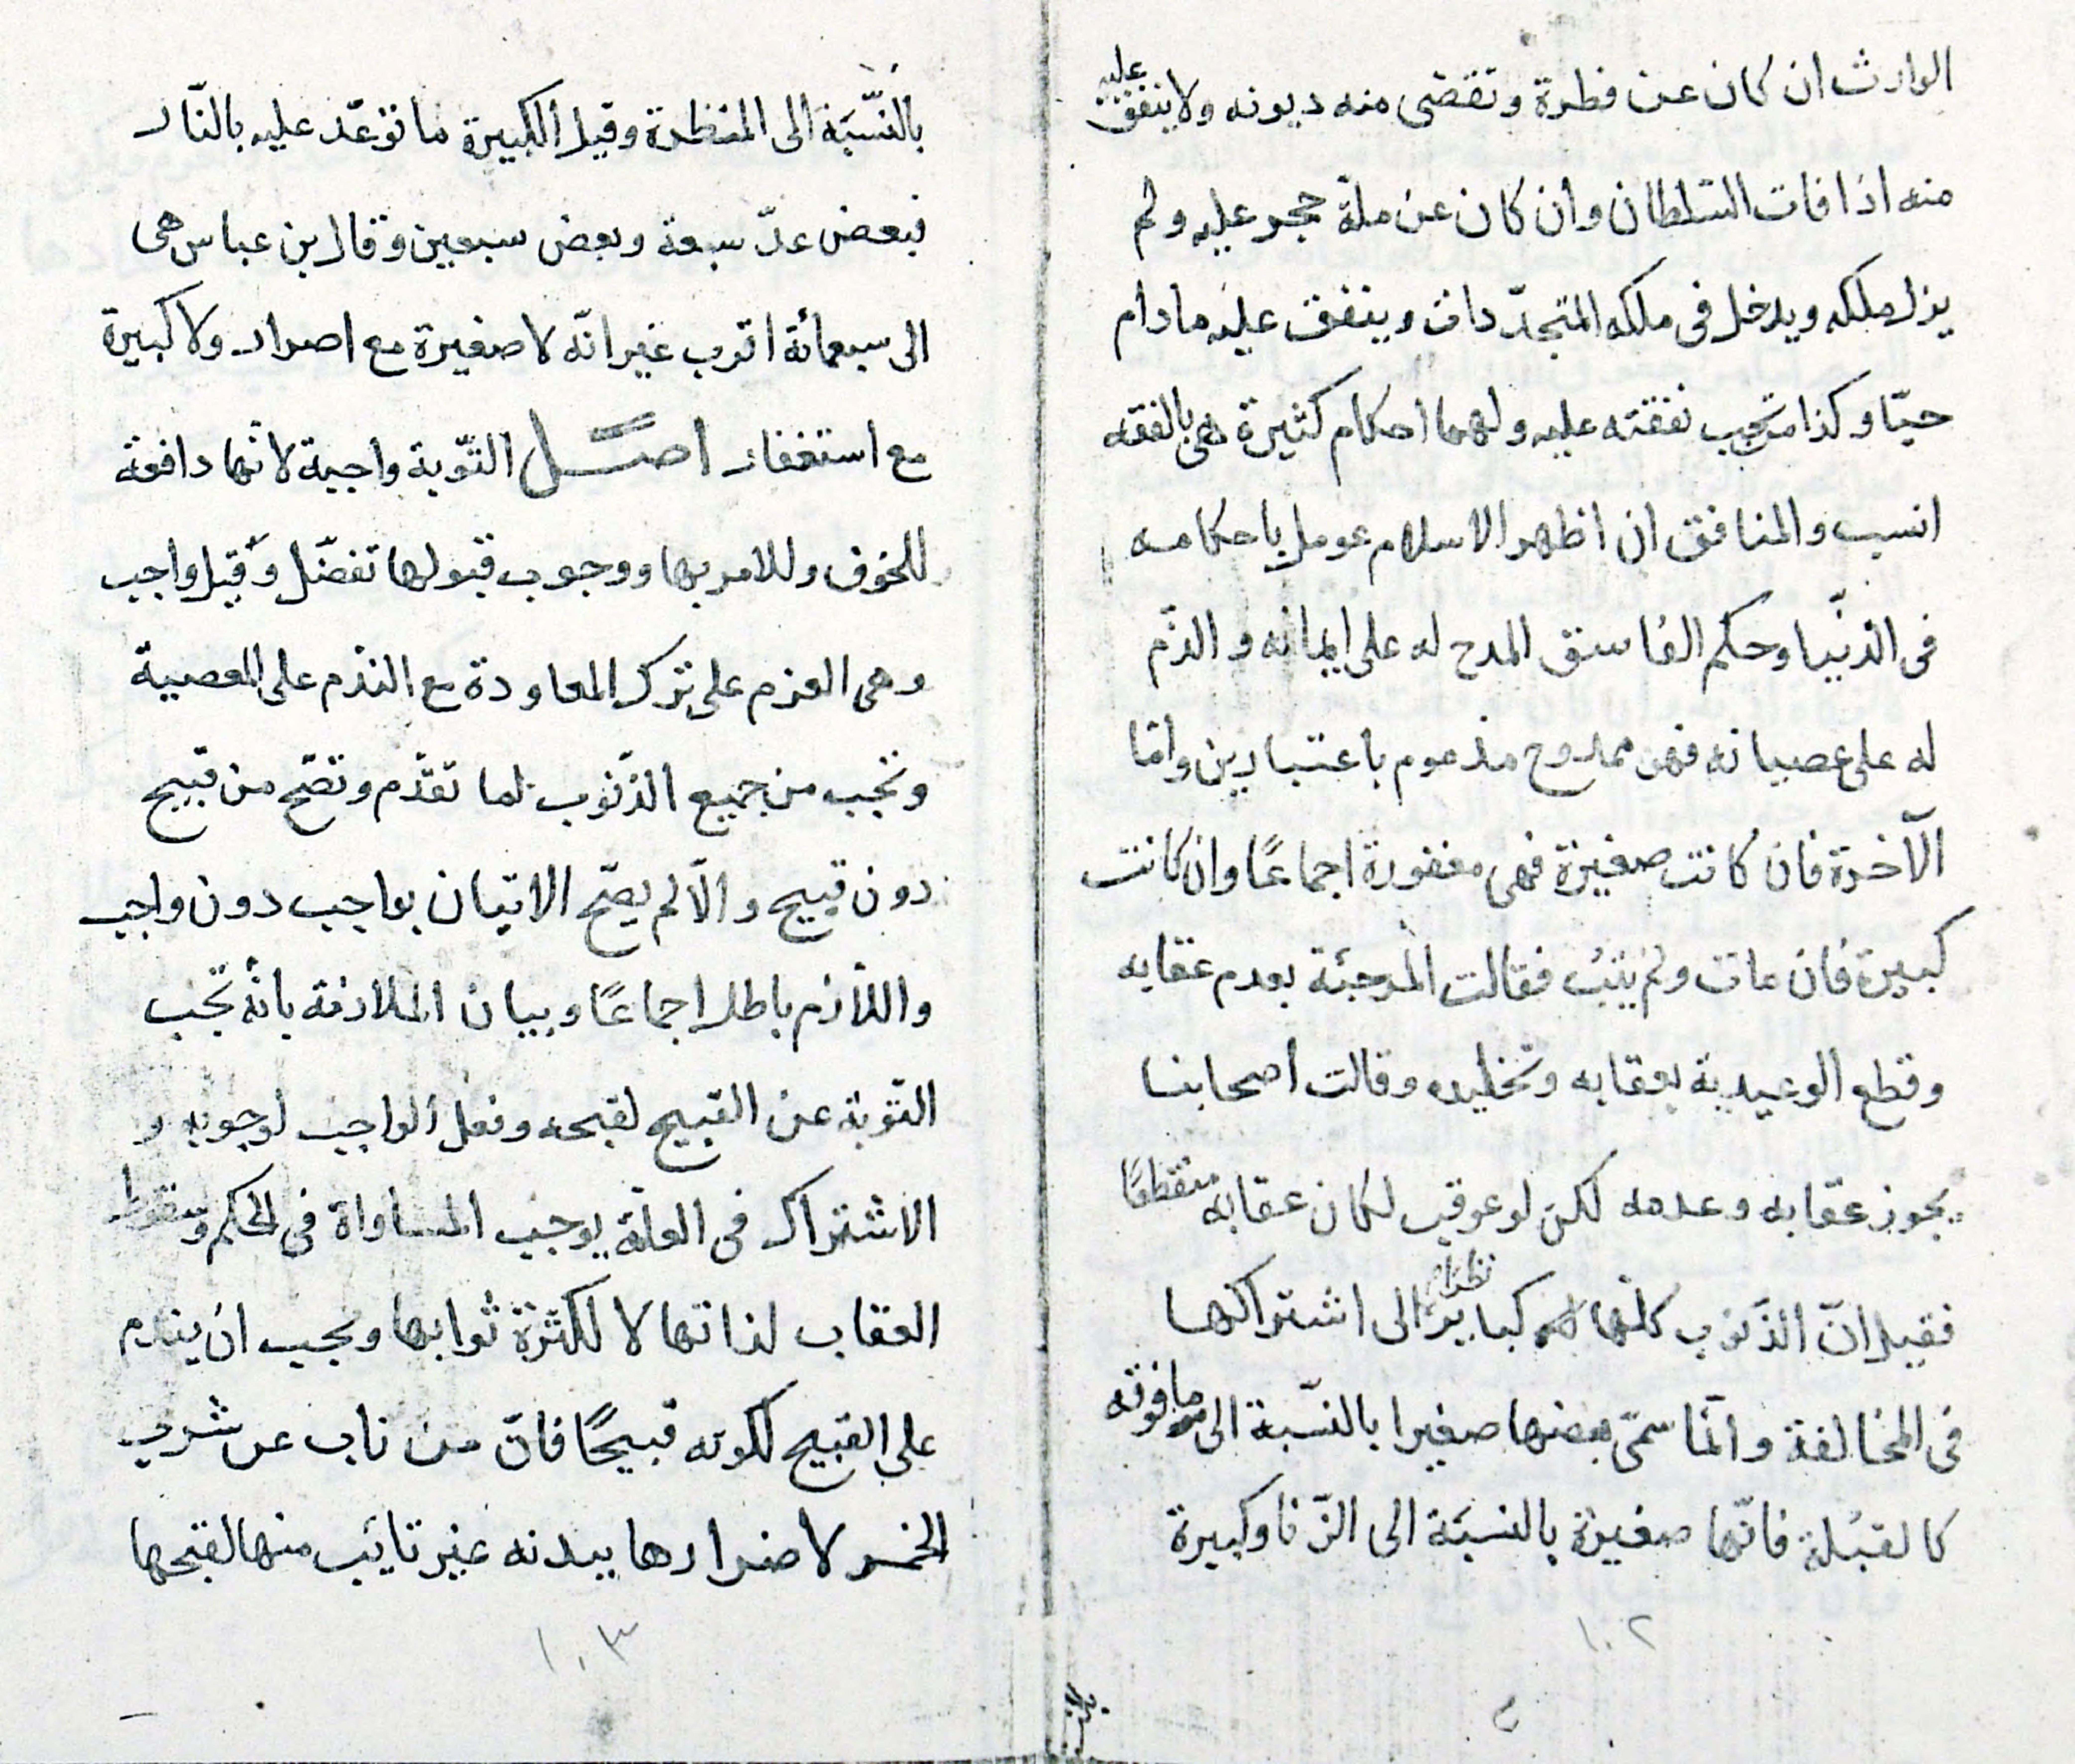 الوارث ان كان عن فطرة وتقضى منه ديونه ولا ينفق عليه
منه اذا فات السّلطان وان كان عن ملة حجر عليه ولم
يزل ملكه ويدخل فى ملكه المتجدّدات وينفق عليه مادام
حيّا وكذا من تجب نفقته عليه ولهما احكام كثيرة هى بالفقه
انسب والمنافق ان اظهر الاسلام عومل باحكامه
فى الدّنيا وحكم الفاسق المدح له على ايمانه والذّم
له على عصيانه فهو ممدوح مذموم باعتبارين وامّا
الآخرة فان كانت صغيرة فهى مغفورة اجماعًا وان كانت
كبيرة فان مات ولم يتب فقالت المرجئة بعدم عقابه
وقطع الوعيدية بعقابه وتخليده وقالت اصحابنا
يجوز عقابه وعدمه لكن لو عوقب لكان عقابه منقطعًا
فقيل انّ الذّنوب كلّها كباير نظرًا الى اشتراكها
فى المخالفة وانّما سمّى بعضها صغيرا بالنّسبة الى ما فوقه
كالقبُلة فانّها صغيرة بالنسبَة الى الزّنا وكبيرة
١٠٢
بالنّسبَة الى المنظرة وقيل الكبيرة ما توعّد عليه بالنّار
فبعض عدّ سبعة وبعض سبعين وقال بن عباس هى
الى سبعمائة اقرب غير انّه لا صغيرة مع اصرار ولا كبيرة
مع استغفار اصل التّوبة واجبة لانّها دافعة
للخوف وللامر بها ووجوب قبولها تفضّل وقيل واجب
وهى العزم على ترك المعاودة مع النّدم على المعصية
وتجب من جميع الذّنوب لما تقدّم وتصّح من قبيح
دون قبيح والّا لم يصّح الاتيان بواجب دون واجب
واللّازم باطل اجماعًا وبيان الملازمة بانّه تجب
التّوبة عن القبيح لقبحه وفعل الواجب لوجوبه و
الاشتراك فى العلّة يوجب المساواة فى الحكم وسقوط
العقاب لذاتها لا لكثرة ثوابها ويجب ان يندم
على القبيح لكونه قبيحًا فانّ من تاب عن شرب
الخمر لاضرارها ببدنه غير تايَب منها لقبحها
١٠٣